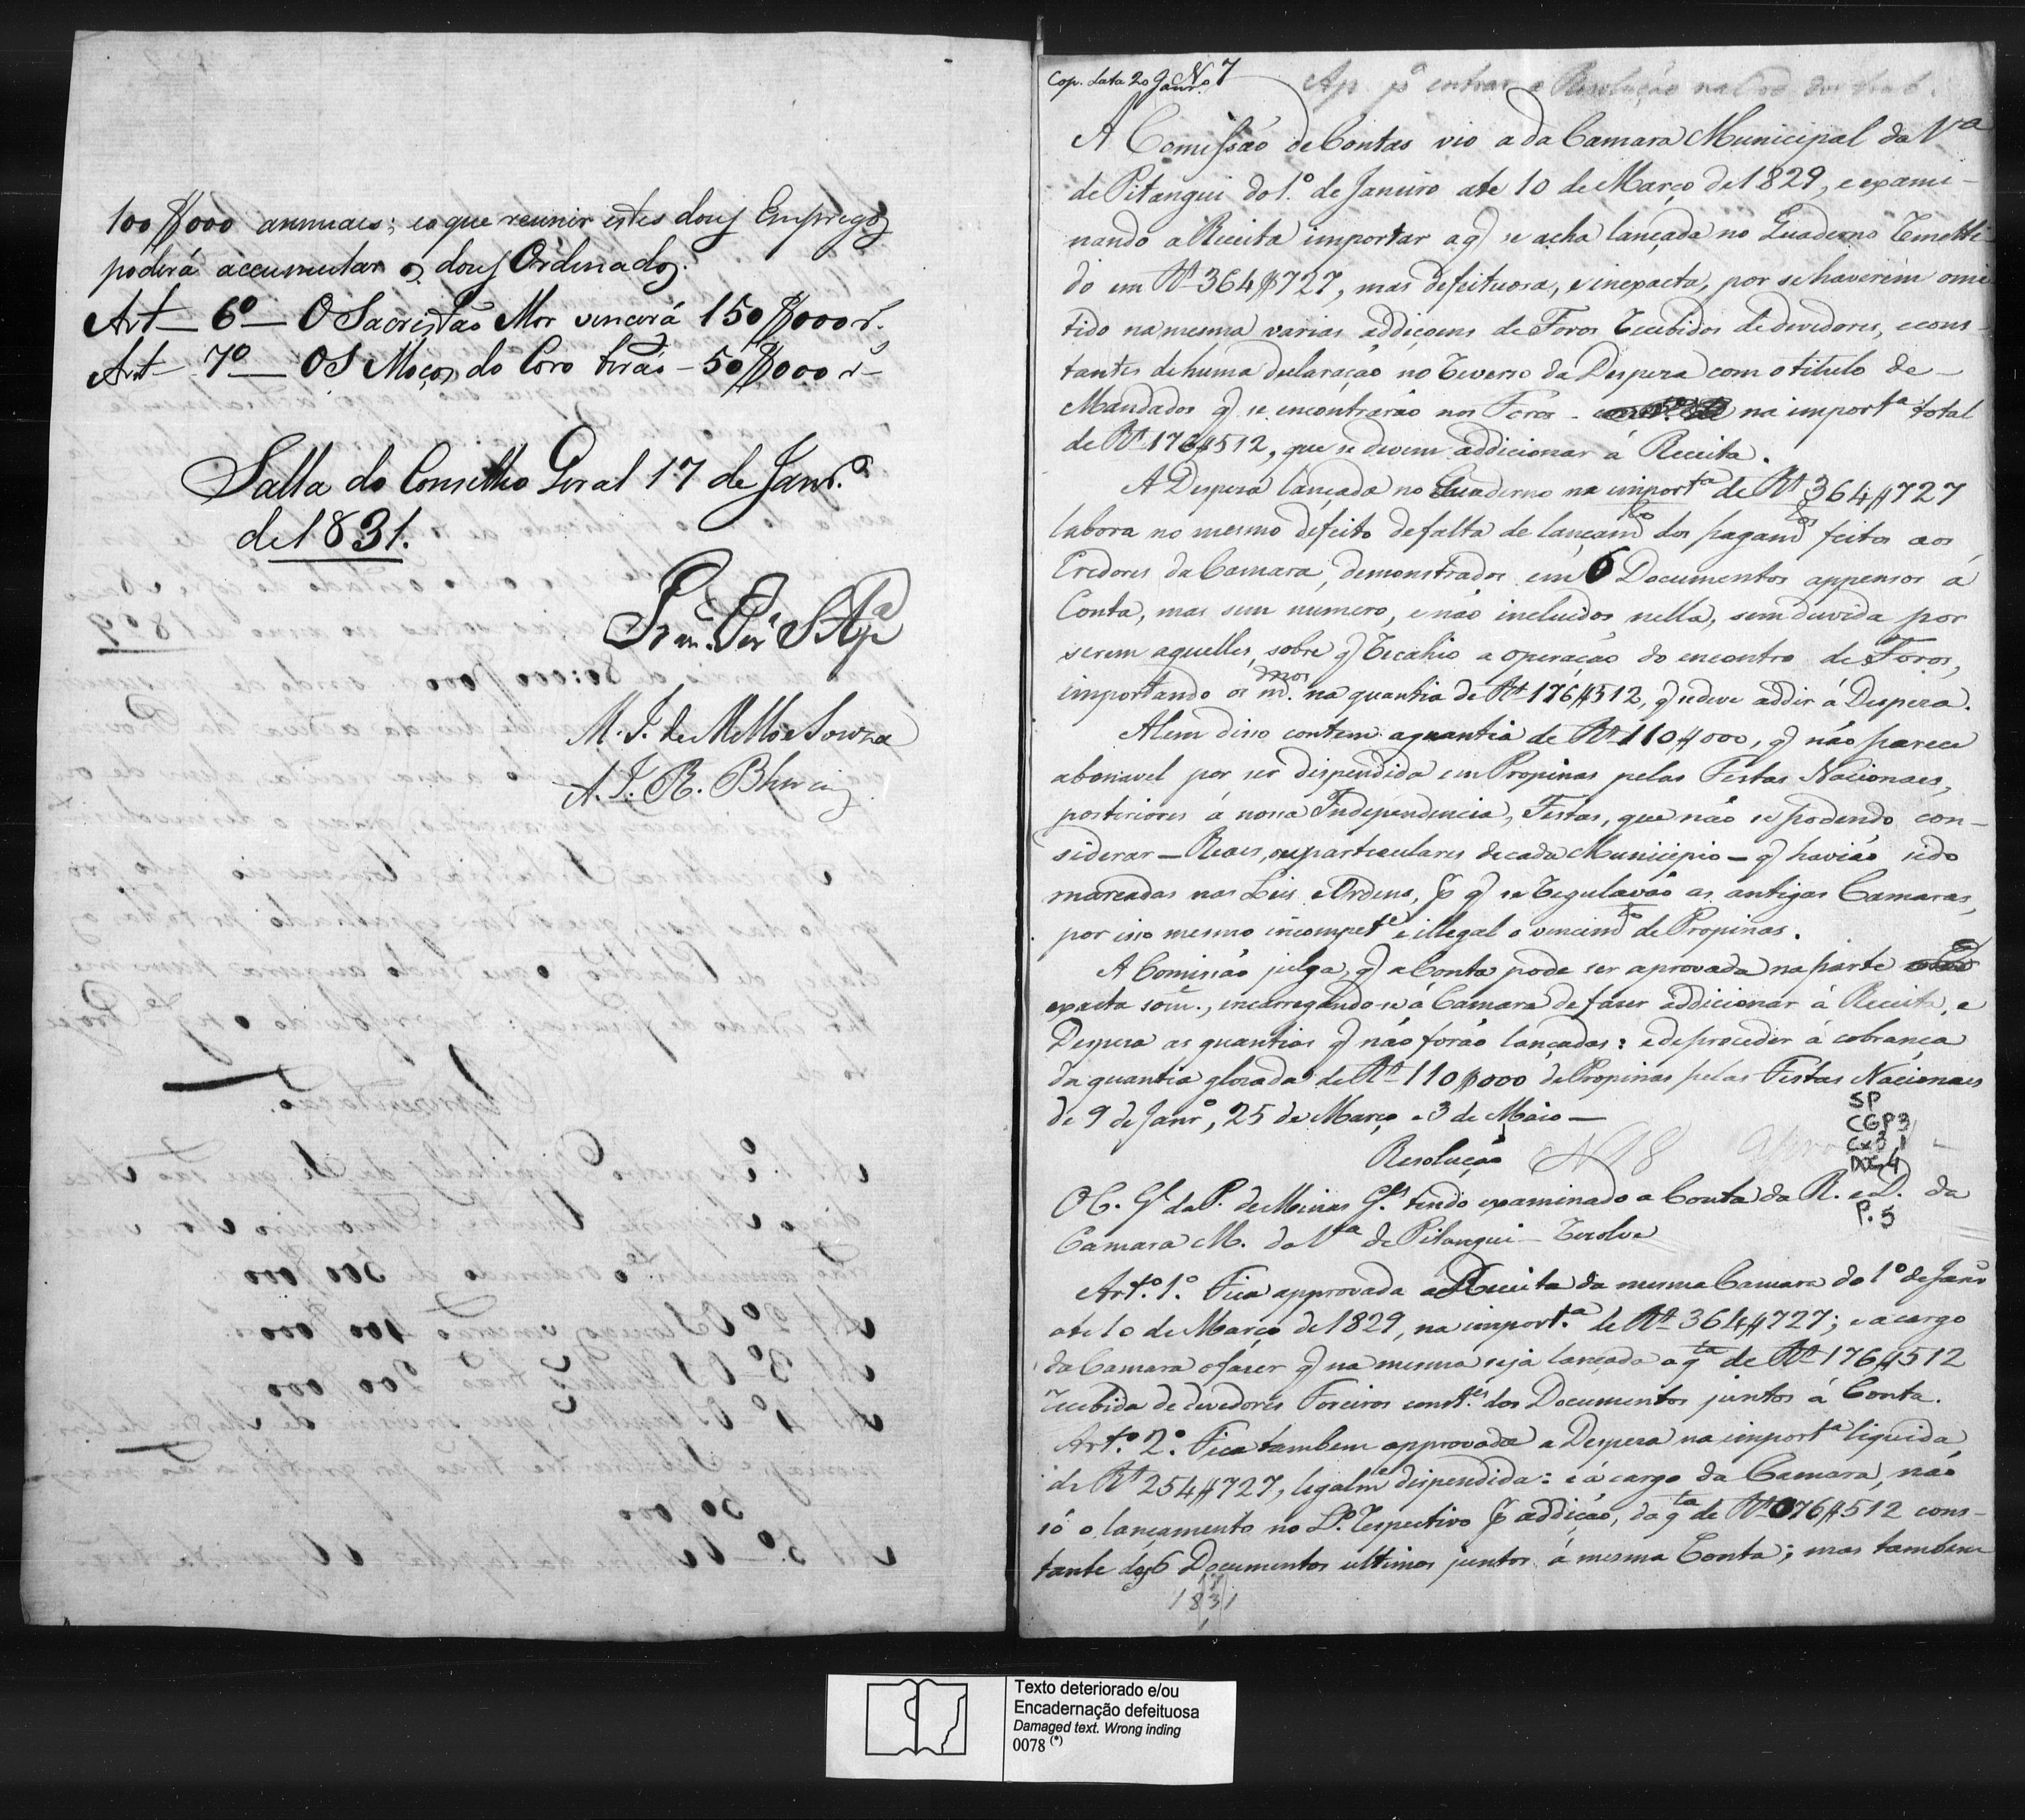 100$000 annuaes; e o que reunir estes dous Empregos
poderá accumular os dous Ordenados.
Art - 6º - O Sacristão Mor vencerá 150$000 rˢ.
Art - 7º - OS Moços do Coro terão - 50$000 rˢ
Salla do Conselho Geral 17 de Janrº
de 1831.
M. I. de Mello e Souza
A. J. R. Bhering
Nº 7
Ap. pª entrar a Resolução na Ord. dos trab.
A Comissão de Contas vio a da Camara Municipal da Vª
de Pitangui do 1º de Janeiro ate 10 de Março de 1829, e exami-
nando a Receita importar a q̃ se acha lançada no Quaderno remetti-
do em Rs 364$727, mas defeituosa, e inexacta, por se haverem omi-
tido na mesma varias addiçoens de Foros recebidos de devedores, e cons-
tantes de huma declaração no reverso da Despeza com o titulo de -
Mandados q̃ se encontrarão nos Foros - na importª total
de Rs 176$512, que se devem addicionar á Receita.
A Despeza lançada no Quaderno na importª de Rs 364$727
labora no mesmo defeito de falta de lançamto dos pagamtos feitos aos
Credores da Camara, demonstrados em 6 Documentos appensos á
Conta, mas sem numero, e não incluidos nella, sem duvida por
serem aquelles, sobre q̃ recahio a operação do encontro de Foros,
importando os mmos. na quantia de Rs 176$512, q̃ se deve addir á Despeza.
Alem disso contem a quantia de Rs 110$000, q̃ não parece
abonavel por ser dispendida em Propinas pelas Festas Nacionaes,
posteriores á nossa Independencia, Festas, que não se podendo con-
siderar - Reaes, ou particulares de cada Municipio - q̃ havião sido
marcadas nas Leis e Ordens, p q̃ se regulavão as antigas Camaras,
por isso mesmo incompete e illegal o vencimto de Propinas.
A Comissão julga, q̃ a Conta pode ser aprovada na parte
exacta som̃., incarregando-se á Camara de fazer addicionar á Receita, e
Despeza as quantias q̃ não forão lançadas: e de proceder á cobrança
da quantia glozada de Rs 110$000 de Propinas pelas Festas Nacionaes
de 9 de Janrº, 25 de Março e 3 de Maio -
SP
CGP3
Cx3
DOC 4
P. 5
Resolução Nº 18
O C. Gl. da P. de Minas Gs. tendo examinado a Conta da R. e D. da
Camara M. da Vª de Pitangui - resolve
Artº. 1º. Fica approvada a Receita da mesma Camara do 1º de Janrº
ate 10 de Março de 1829, na importª. de Rs 364$727; e a cargo
da Camara o fazer q̃ na mesma seja lançada a qta de Rs 176$512
recebida de devedores Foreiros constes. dos Documentos juntos á Conta.
Artº. 2º. Fica tambem approvada a Despeza na importª liquida
de Rs 254$727, legalme dispendida: e á cargo da Camara, não
só o lançamento no Lº. respectivo p addição, da qta de Rs 176$512 cons-
tante dos 6 Documentos ultimos juntos á mesma Conta; mas tambem
1831
Texto deteriorado e/ou
Encadernação defeituosa
Damaged text. Wrong inding
0078 (*)